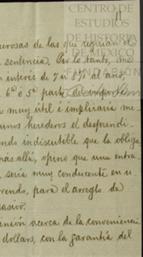 CENTRO DE
ESTUDIOS
DE HISTORIA
DE MEXICO
11
erosas de las que
sentencia. Por lo tanto, un
interés de 7 u 8% al año,
6ª ó 5ª parte del importe
muy útil é implicaria me
unos herederos el desprendi
endo indiscutible que la obliga
más allá, opino que una entra
seria muy conducente en u
rendo, para el arreglo de
pasivo.
ención acerca de la convenienci
dollars, con la garantía del